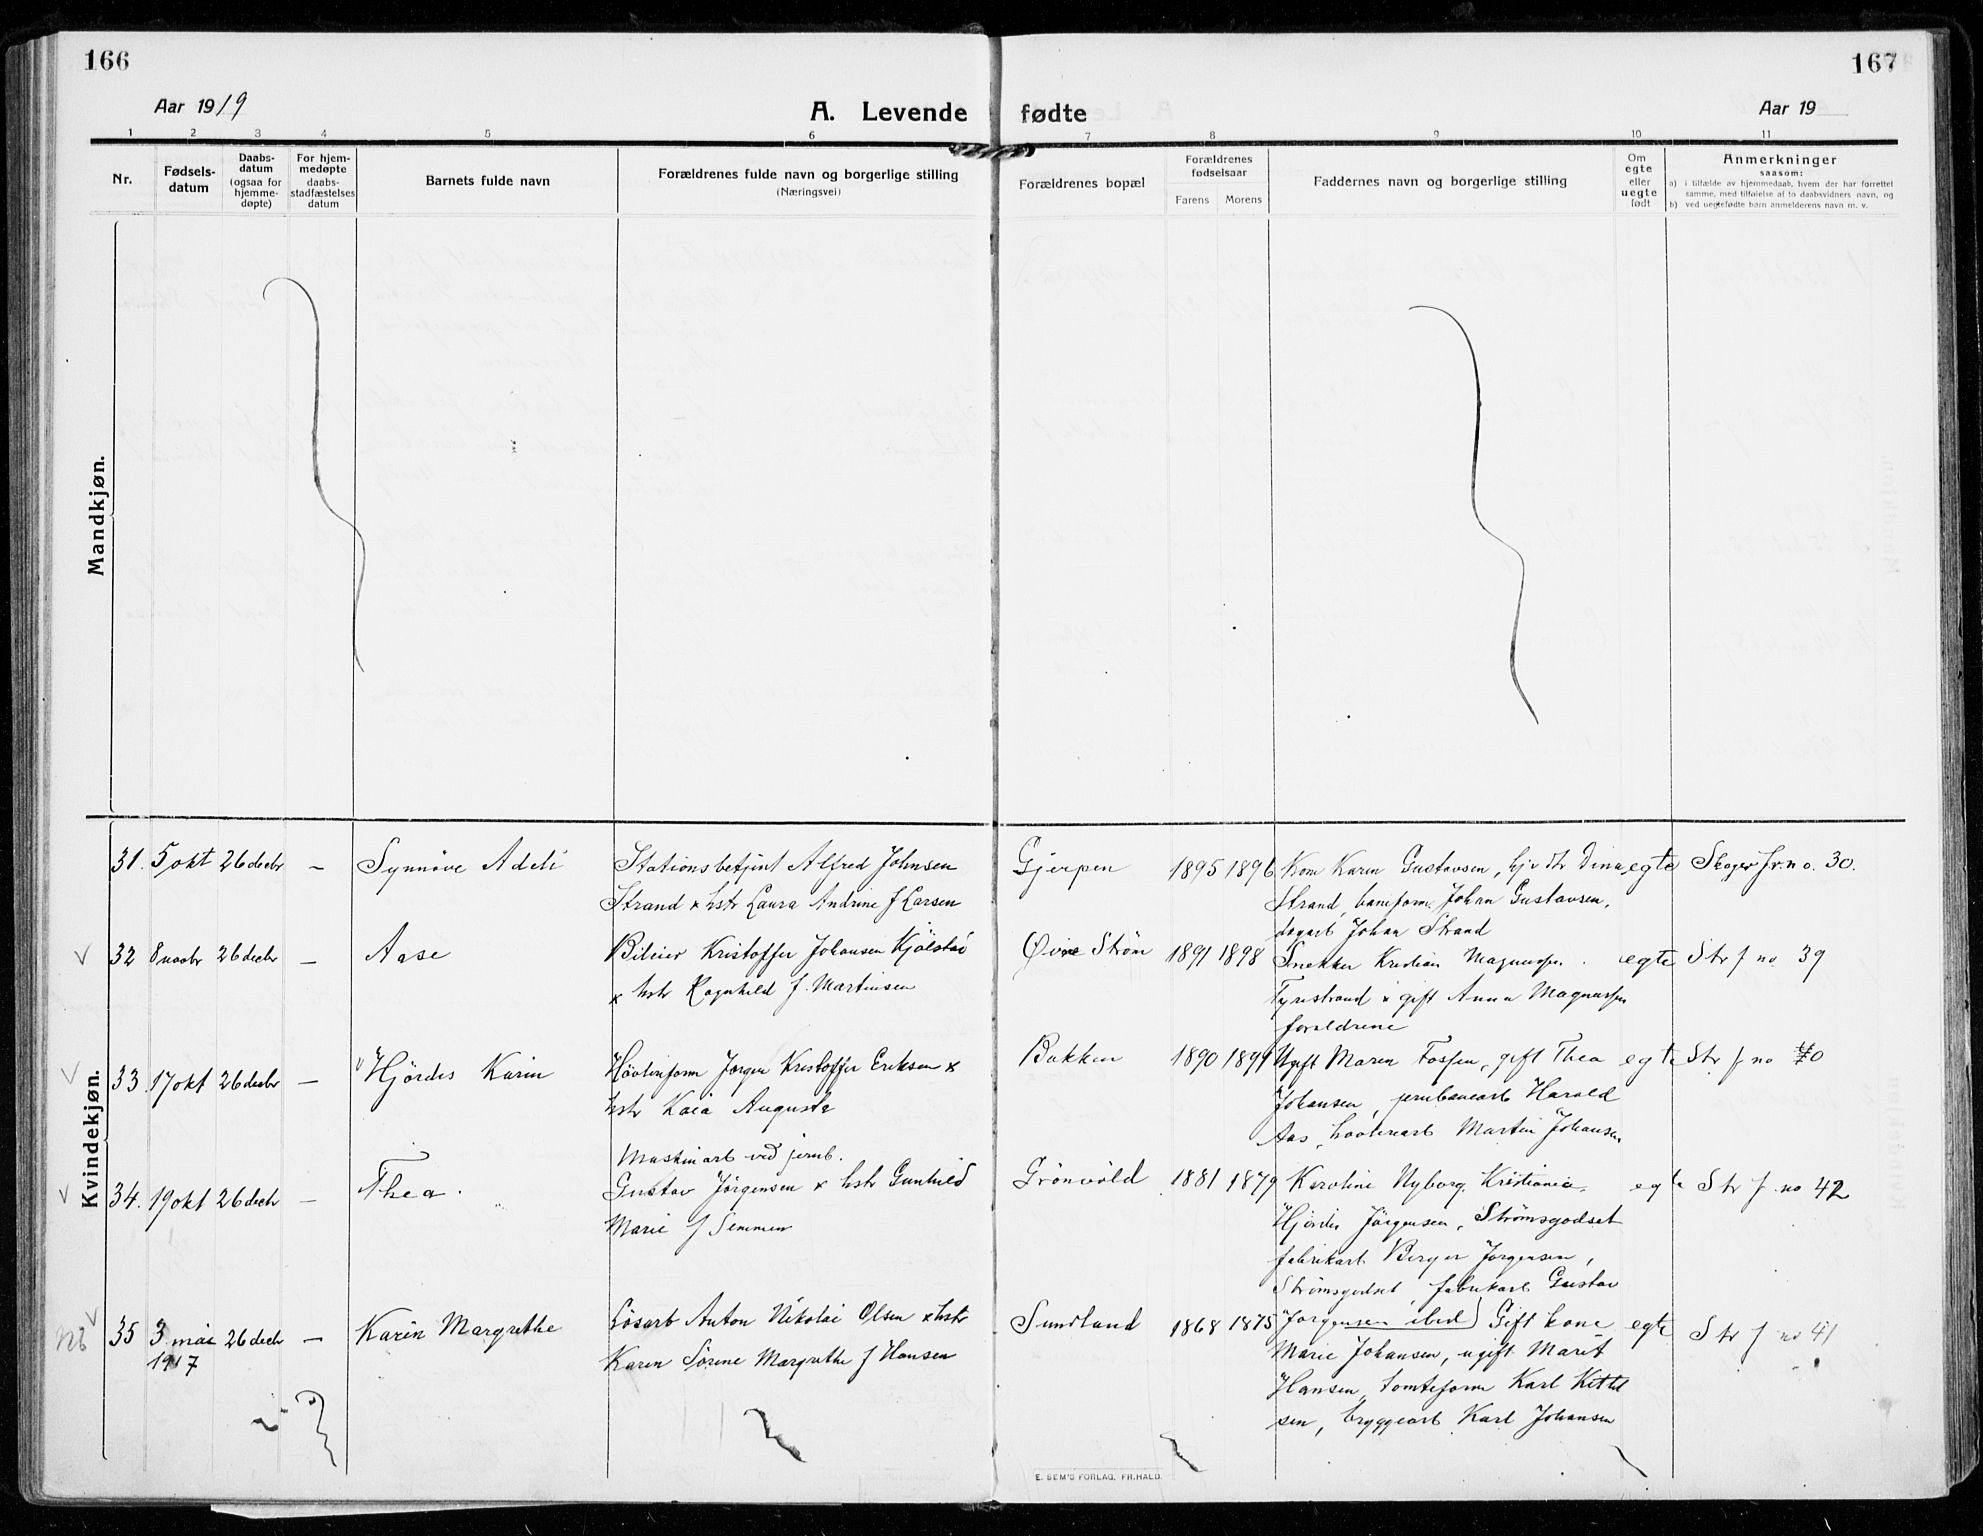 166
167
Aar 1919
A. Levende fødte
Aar 19
1 2 3 4 5 6 7 8 9 10 11
Nr.
Fødsels-
datum
Daabs-
datum
(ogsaa for
hjemme-
døpte)
For hjem-
medøpte
daabs-
stadfæstelses
datum
Barnets fulde navn
Forældrenes fulde navn og borgerlige stilling
(Næringsvei)
Forældrenes bopæl
Forældrenes
fødselsaar
Farens Morens
Faddernes navn og borgerlige stilling
Om
egte
eller
uegte
født
Anmerkninger
saasom:
a) i tilfælde av hjemmedaab, hvem der har forrettet
samme, med tilføielse af to daabsvidners navn, og
b) ved uegtefødte barn anmelderens navn m. v.
Mandkjøn.
Kvindekjøn.
31. 5 okt 26 decbr — Synnöve Adeli
Stationsbetjent Alfred Johnsen
Strand x hstr Laura Andrine f Larsen
Gjerpen 1895 1896
Kone Karen Gustavsen, Dina
Strand, baneform Johan Gustavsen,
dagarb Johan Strand
egte Skoger fr. no. 30.
32 8 novbr 26 decbr — Aase
Bileier Kristoffer Johansen Kjölstad
x hstr Ragnhild f. Martinsen
Øvre Strøm 1891 1898
Snekker Kristian Magnussen
Tyristrand x gift Anna Magnussen
forældrene
egte Str f no 39
33. 17 okt 26 decbr — Hjördis Karin
Hövleriform Jörgen Kristoffer Eriksen x
hstr Kaia Augusta
Bakken 1890 1894
Ugift Maren Fossen, gift Thea
Johansen, jernbanearb Harald
Aas, hövleriarb Martin Johansen
egte Str f no 40
34. 19 okt 26 decbr — Thea.
Maskinarb ved jernb.
Gustav Jörgensen x hstr Gunhild
Marie f Semmen
Grönvold 1881 1879
Karoline Nyborg, Kristiania,
Hjördis Jörgensen, Strömsgodset
fabrikarb Birger Jörgensen,
Strömsgodset, fabrikarb Gustav
Jörgensen ibid
egte Str f. no 42
NB 35 3 mai 26 decbr — Karin Margrethe
1917
Lösarb Anton Nikolai Olsen x hstr
Karen Sörine Margrethe f Hansen
Sundland 1868 1875
Gift kone
Marie Johansen, ugift Marit
Hansen, tomteform Karl Kittil
sen, bryggearb Karl Johansen
egte Str f no 41
E. SEM'S FORLAG, FR.HALD.